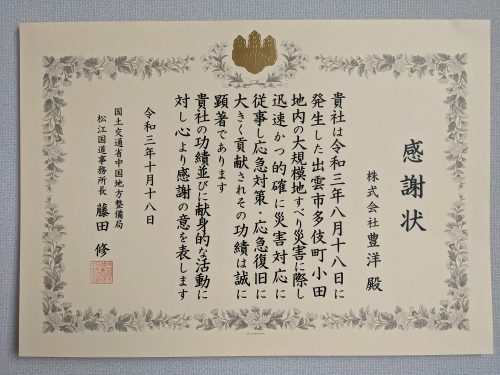 感謝状
株式会社豊洋 殿
貴社は令和三年八月十八日に
発生した出雲市多伎町小田
地内の大規模地すべり災害に際し
迅速かつ的確に災害対応に
従事し応急対策・応急復旧に
大きく貢献されその功績は誠に
顕著であります
貴社の功績並びに献身的な活動に
対し心より感謝の意を表します
令和三年十月十八日
国土交通省中国地方整備局
松江国道事務所長 藤田 修